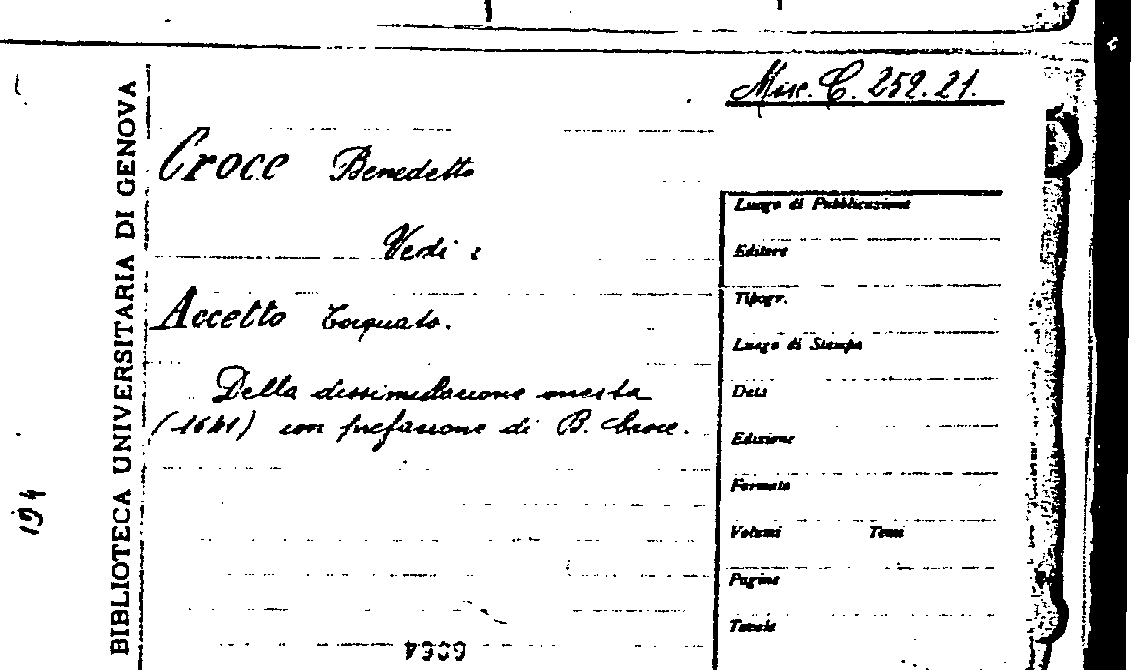 Misc. C. 252. 21.
BIBLIOTECA UNIVERSITARIA DI GENOVA
Croce Benedetto
Vedi :
Accetto Torquato.
Della dissimulazione onesta
(1641) con prefazione di B. Croce.
Luogo di Pubblicazione
Editore
Tipogr.
Luogo di Stampa
Data
Edizione
Formato
Volumi Tomi
Pagine
Tavole
194